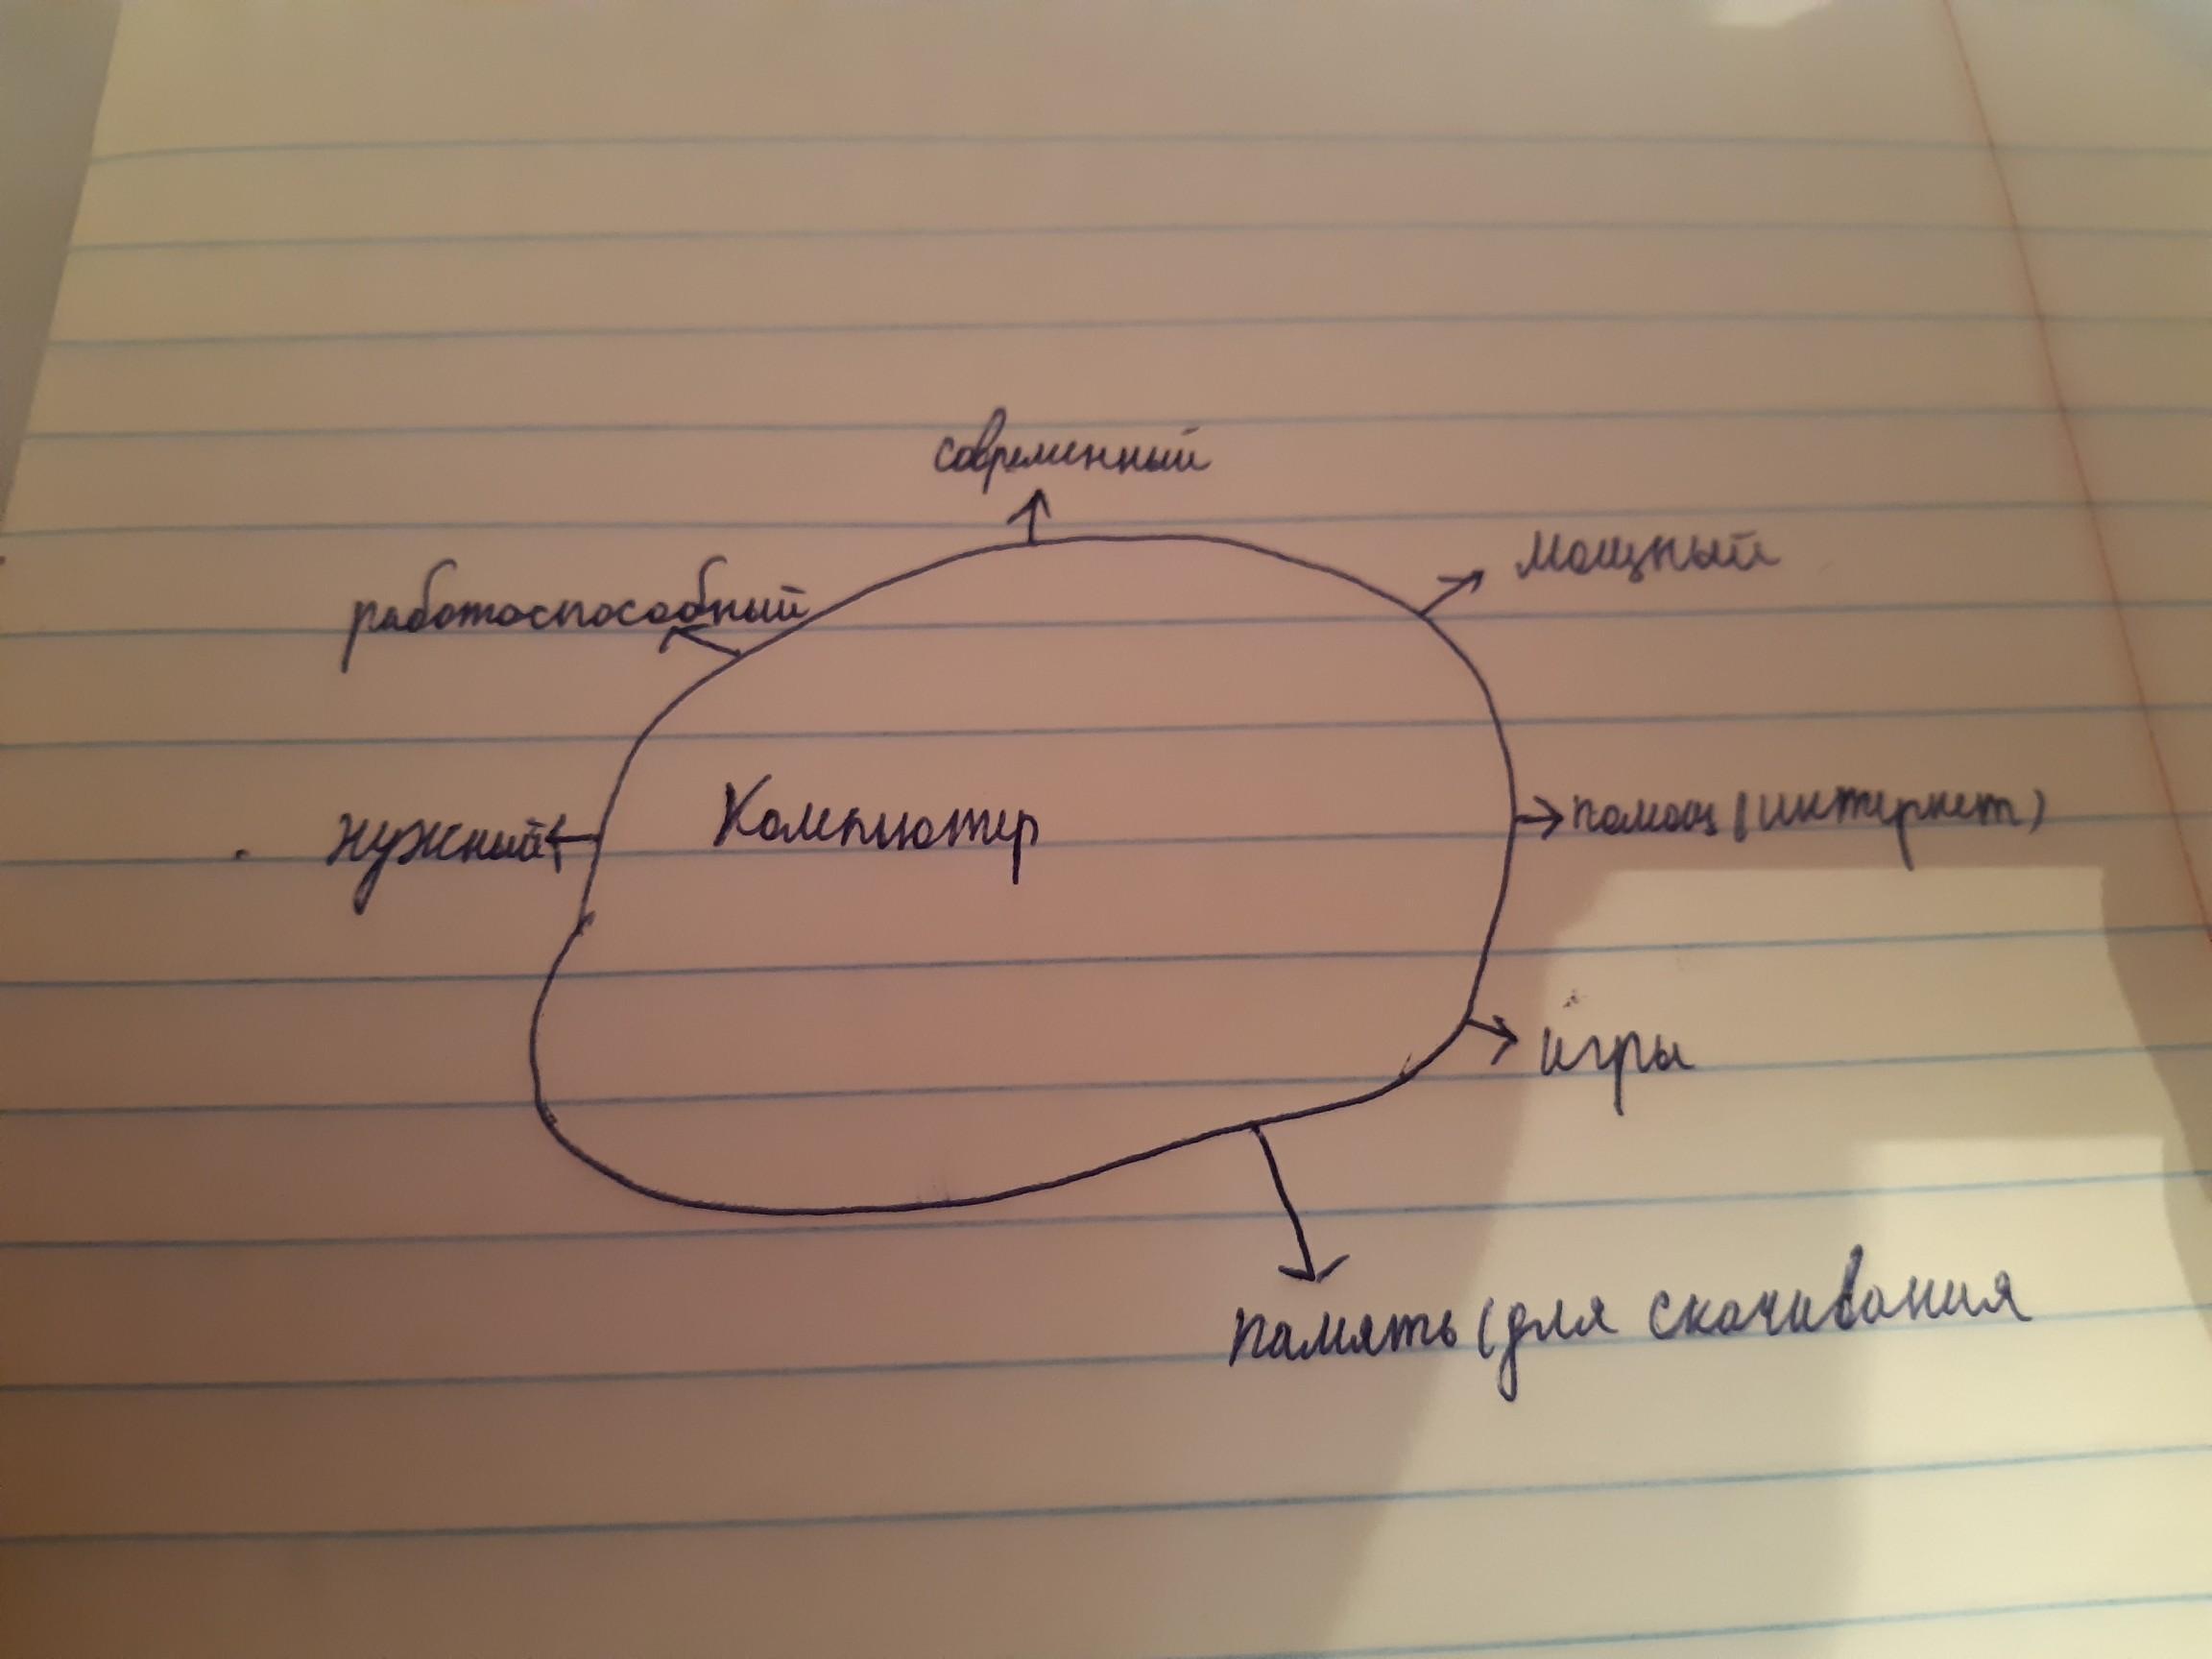 современный
мощный
работоспособный
Компютер
нужный
помощ (интернет)
игры
память (для скачивания